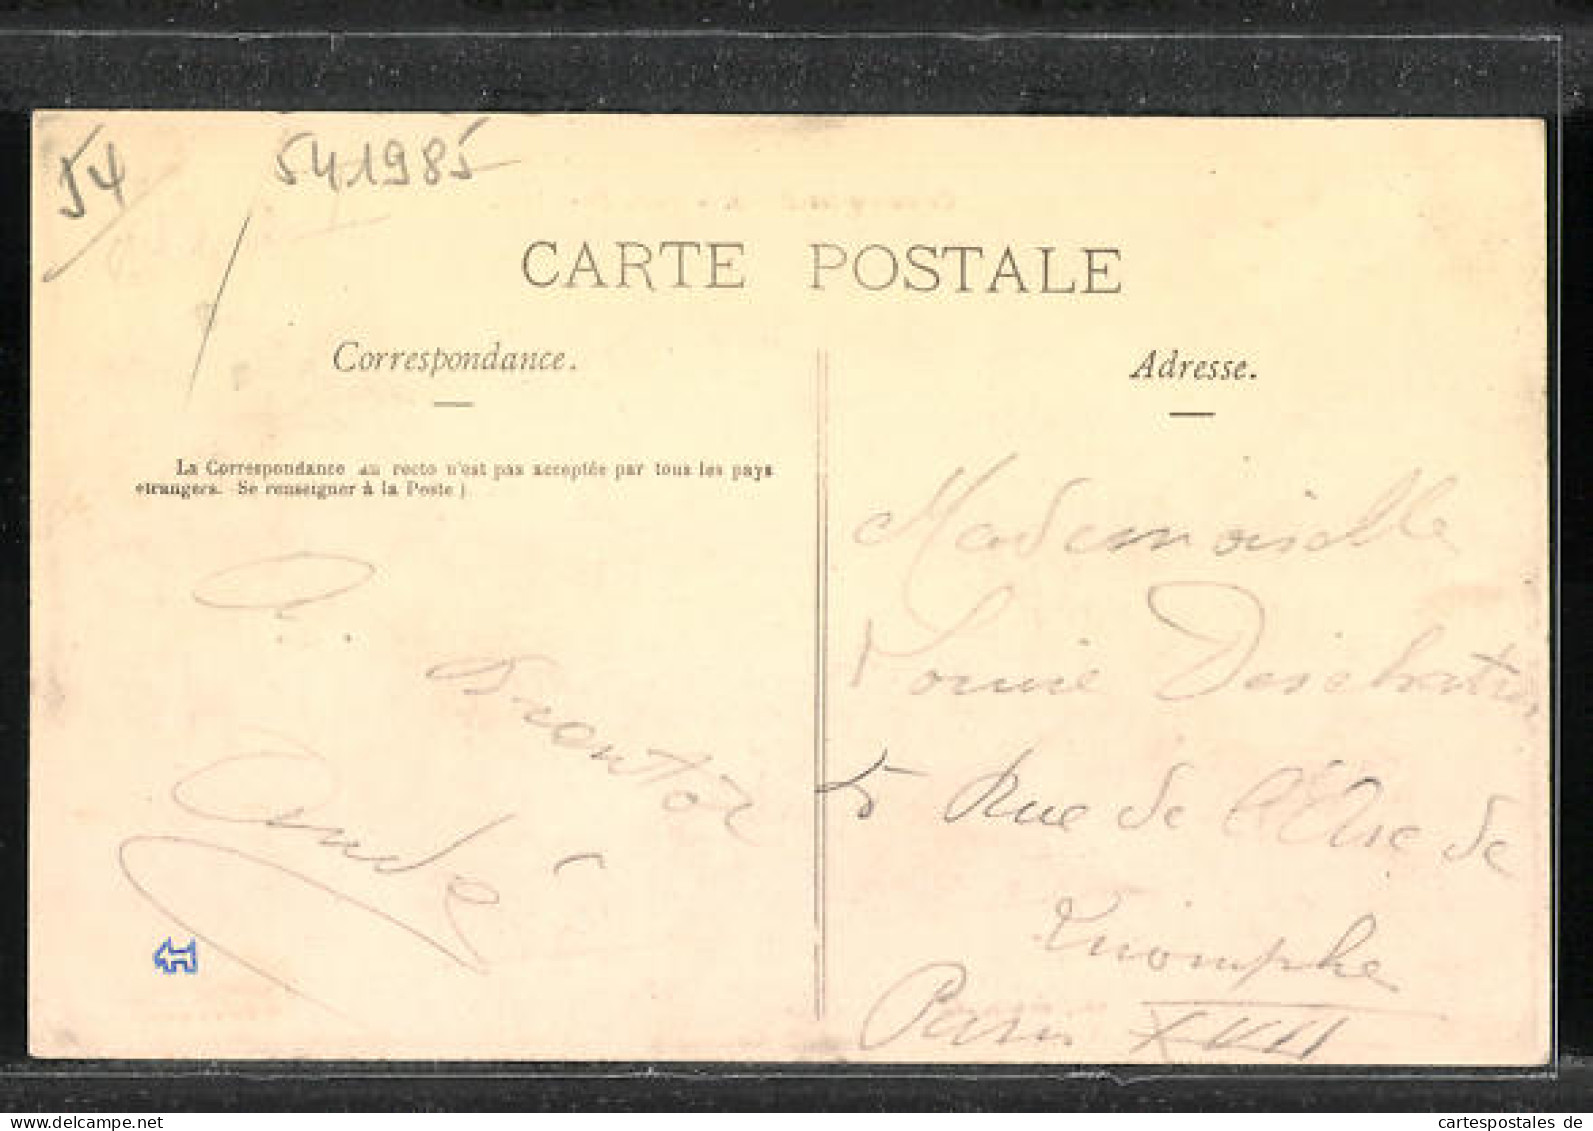 54
541985
CARTE POSTALE
Correspondance.
Adresse.
La Correspondance au recto n'est pas acceptée par tous les pays
etrangers. Se renseigner à la Poste)
A
Bientôt
André
Mademoiselle
Louise
5 Rue de l'Arc de
Triomphe
Paris XVII
www.delcampe.net
cartespostales de